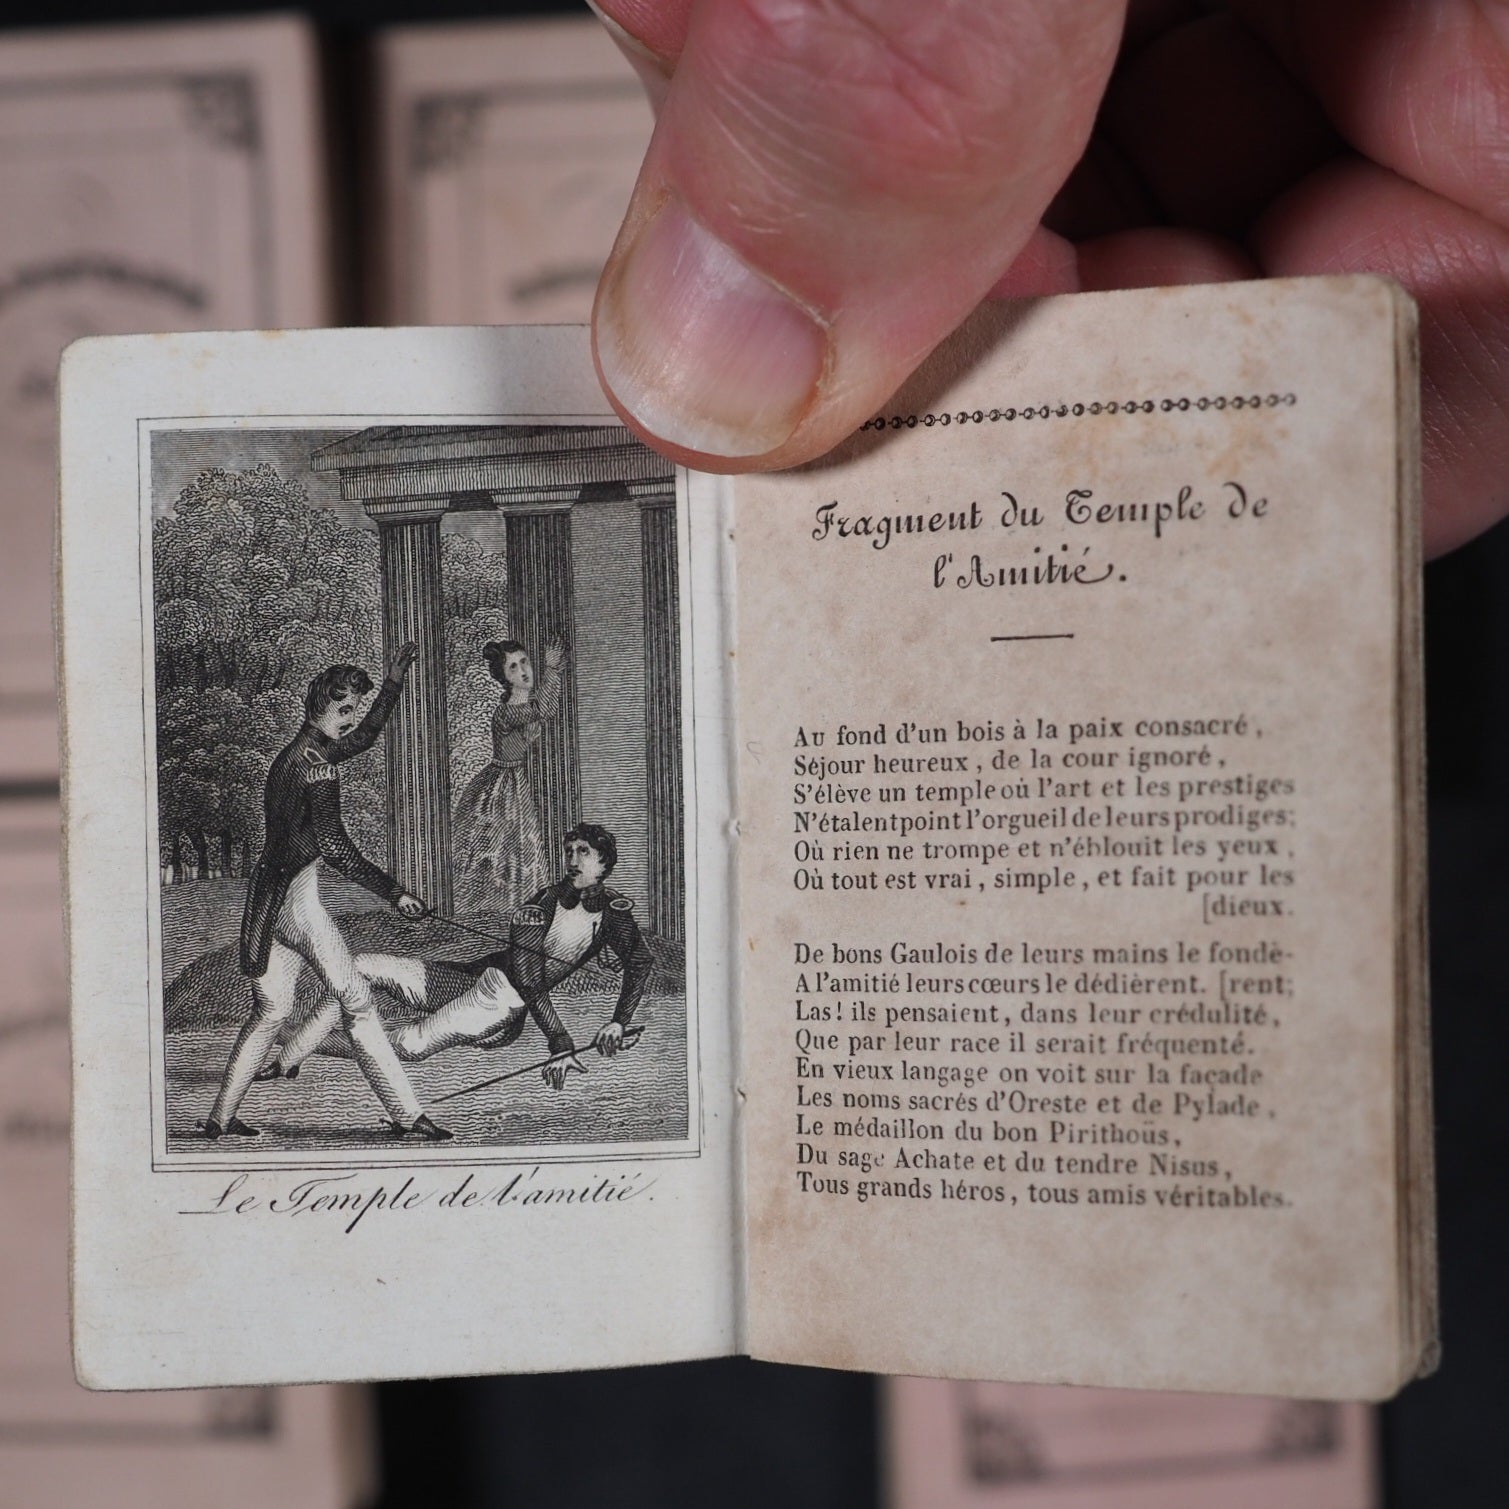 Le Temple de l'amitié.
Fragment du Temple de
l'Amitié.
Au fond d'un bois à la paix consacré,
Séjour heureux, de la cour ignoré,
S'élève un temple où l'art et les prestiges
N'étalent point l'orgueil de leurs prodiges;
Où rien ne trompe et n'éblouit les yeux,
Où tout est vrai, simple, et fait pour les
[dieux.
De bons Gaulois de leurs mains le fondè-
A l'amitié leurs cœurs le dédièrent. [rent;
Las! ils pensaient, dans leur crédulité,
Que par leur race il serait fréquenté.
En vieux langage on voit sur la façade
Les noms sacrés d'Oreste et de Pylade,
Le médaillon du bon Pirithoüs,
Du sage Achate et du tendre Nisus,
Tous grands héros, tous amis véritables.